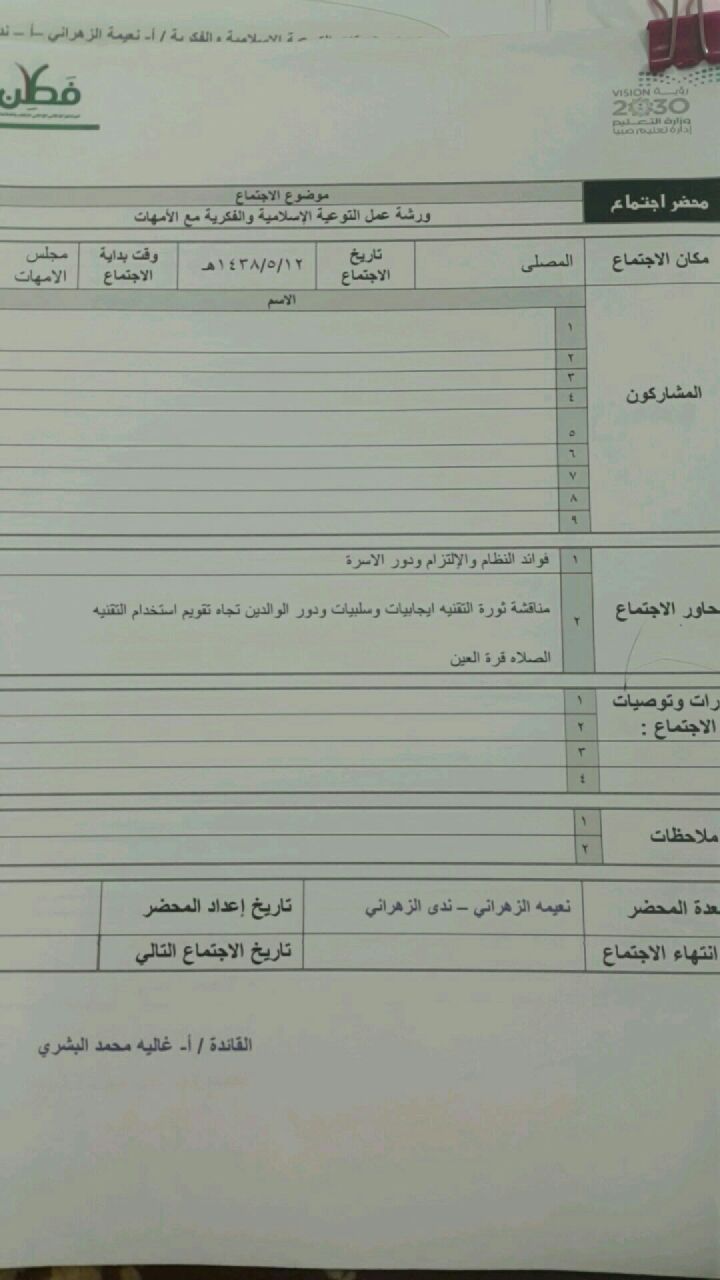 الإسلامية والفكرية / أ- نعيمة الزهراني –أ –
فَطِن
VISION رؤيـــة
2030
وزارة التعـــليم
إدارة تعليم صبيا
محضر اجتماع
موضوع الاجتماع
ورشة عمل التوعية الإسلامية والفكرية مع الأمهات
مكان الاجتماع المصلى تاريخ الاجتماع ١٤٣٨/٥/١٢هـ وقت بداية الاجتماع مجلس الامهات
الاسم
المشاركون
١
٢
٣
٤
٥
٦
٧
٨
٩
حاور الاجتماع
١ فوائد النظام والإلتزام ودور الاسرة
٢ مناقشة ثورة التقنيه ايجابيات وسلبيات ودور الوالدين تجاه تقويم استخدام التقنيه
الصلاه قرة العين
رات وتوصيات
الاجتماع :
١
٢
٣
٤
ملاحظات
١
٢
عدة المحضر نعيمه الزهراني – ندى الزهراني تاريخ إعداد المحضر
انتهاء الاجتماع تاريخ الاجتماع التالي
القائدة / أ- غاليه محمد البشري